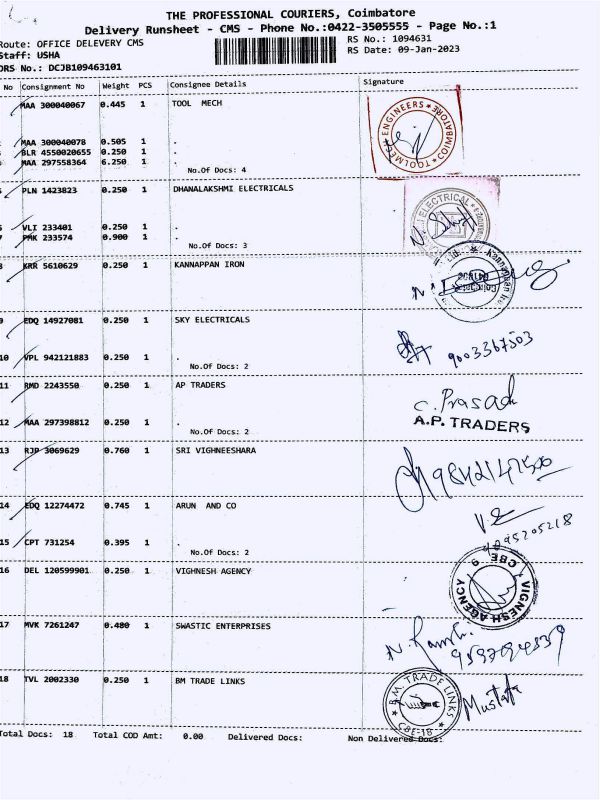 THE PROFESSIONAL COURIERS, Coimbatore
Delivery Runsheet - CMS - Phone No.:0422-3505555 - Page No.:1
Route: OFFICE DELEVERY CMS RS No.: 1094631
Staff: USHA RS Date: 09-Jan-2023
DRS No.: DCJB109463101
No Consignment No Weight PCS Consignee Details Signature
MAA 300040067 0.445 1 TOOL MECH
TOOLMECH ENGINEERS COIMBATORE
MAA 300040078 0.505 1 .
BLR 4550020655 0.250 1 .
MAA 297558364 6.250 1 .
No.Of Docs: 4
PLN 1423823 0.250 1 DHANALAKSHMI ELECTRICALS
ELECTRICAL
VLI 233401 0.250 1 .
PMK 233574 0.900 1 .
No.Of Docs: 3
8 KRR 5610629 0.250 1 KANNAPPAN IRON
9 EDQ 14927081 0.250 1 SKY ELECTRICALS
9003367503
10 VPL 942121883 0.250 1 .
No.Of Docs: 2
11 RMD 2243550 0.250 1 AP TRADERS
C. Prasad
A.P. TRADERS
12 MAA 297398812 0.250 1 .
No.Of Docs: 2
13 RJP 3069629 0.760 1 SRI VIGHNEESHARA
14 EDQ 12274472 0.745 1 ARUN AND CO
15 CPT 731254 0.395 1 .
No.Of Docs: 2
16 DEL 120599901 0.250 1 VIGHNESH AGENCY
VIGNESH AGENCY CBE 9
17 MVK 7261247 0.480 1 SWASTIC ENTERPRISES
18 TVL 2002330 0.250 1 BM TRADE LINKS
B.M. TRADE LINKS CBE-18
Mustafa
Total Docs: 18 Total COD Amt: 0.00 Delivered Docs: Non Delivered Docs: